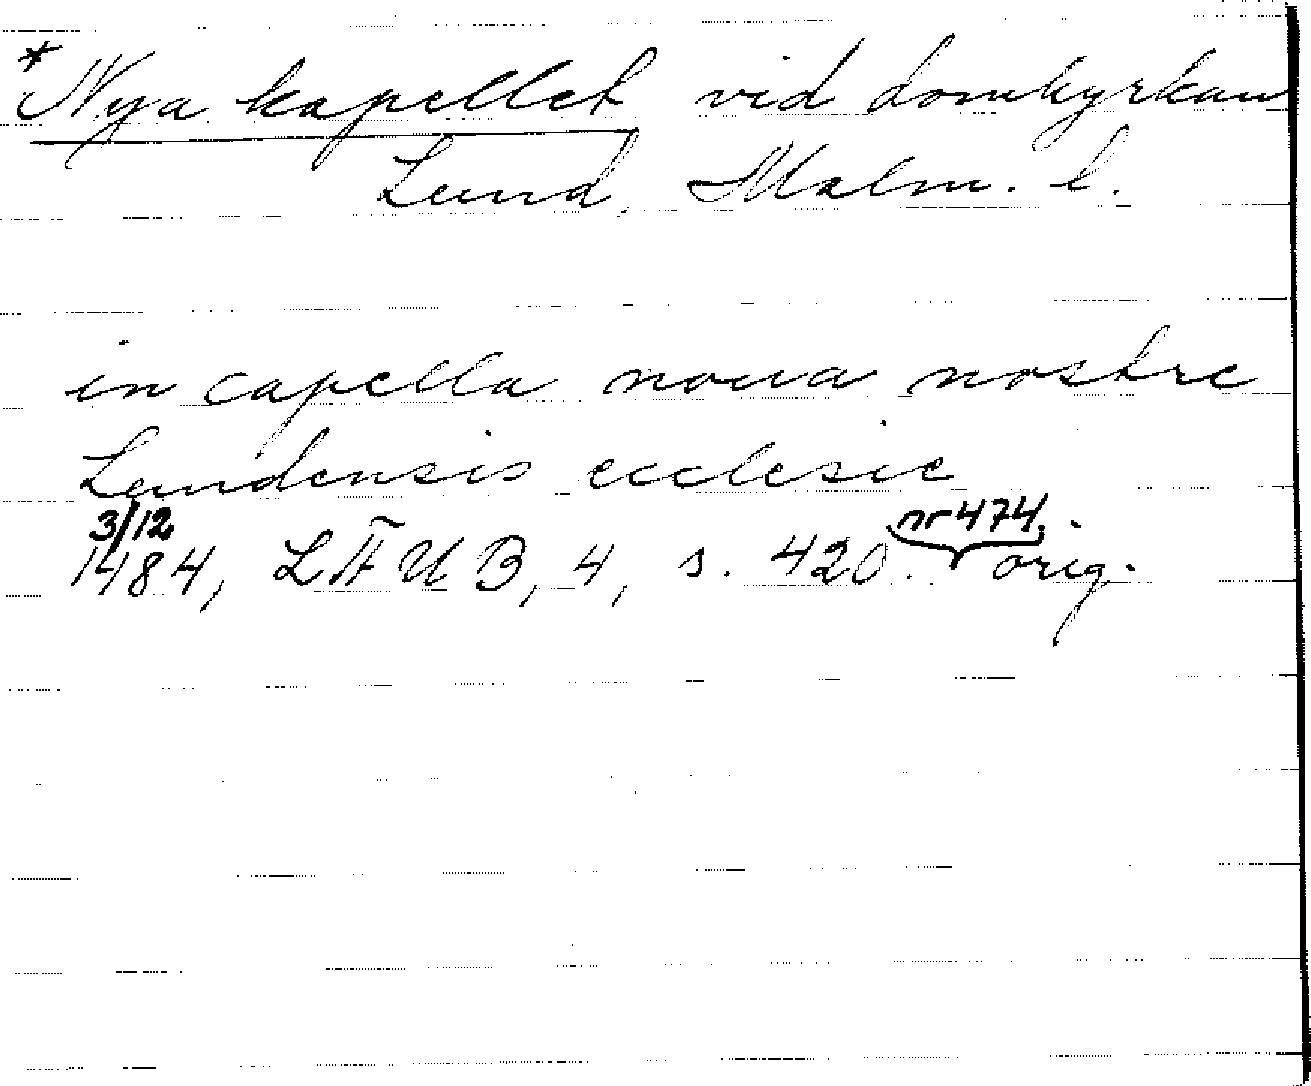 *Nya kapellet vid domkyrkan
Lund, Malm. l.
in capella noua nostre
Lundensis ecclesie
3/12 nr 474,
1484, LÄUB, 4, s. 420. orig.